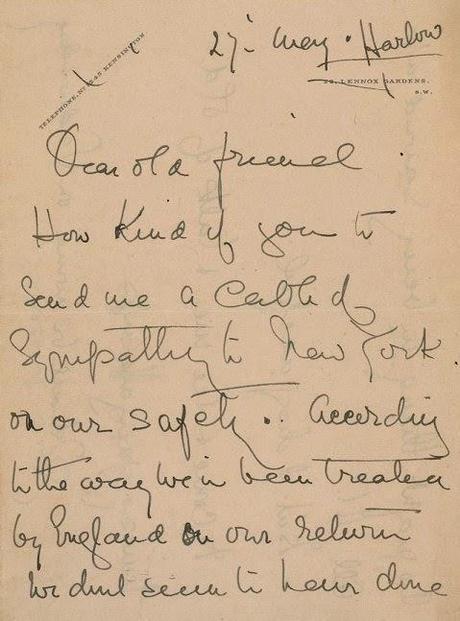 27' May. Harlow
TELEPHONE, KENSINGTON
LENNOX GARDENS,
S.W.
Dear old friend.
How Kind of you to
Send me a Cable of
Sympathy to New York.
on our safety.. According
to the way we've been treated
by England on our return
we didn't seem to have done